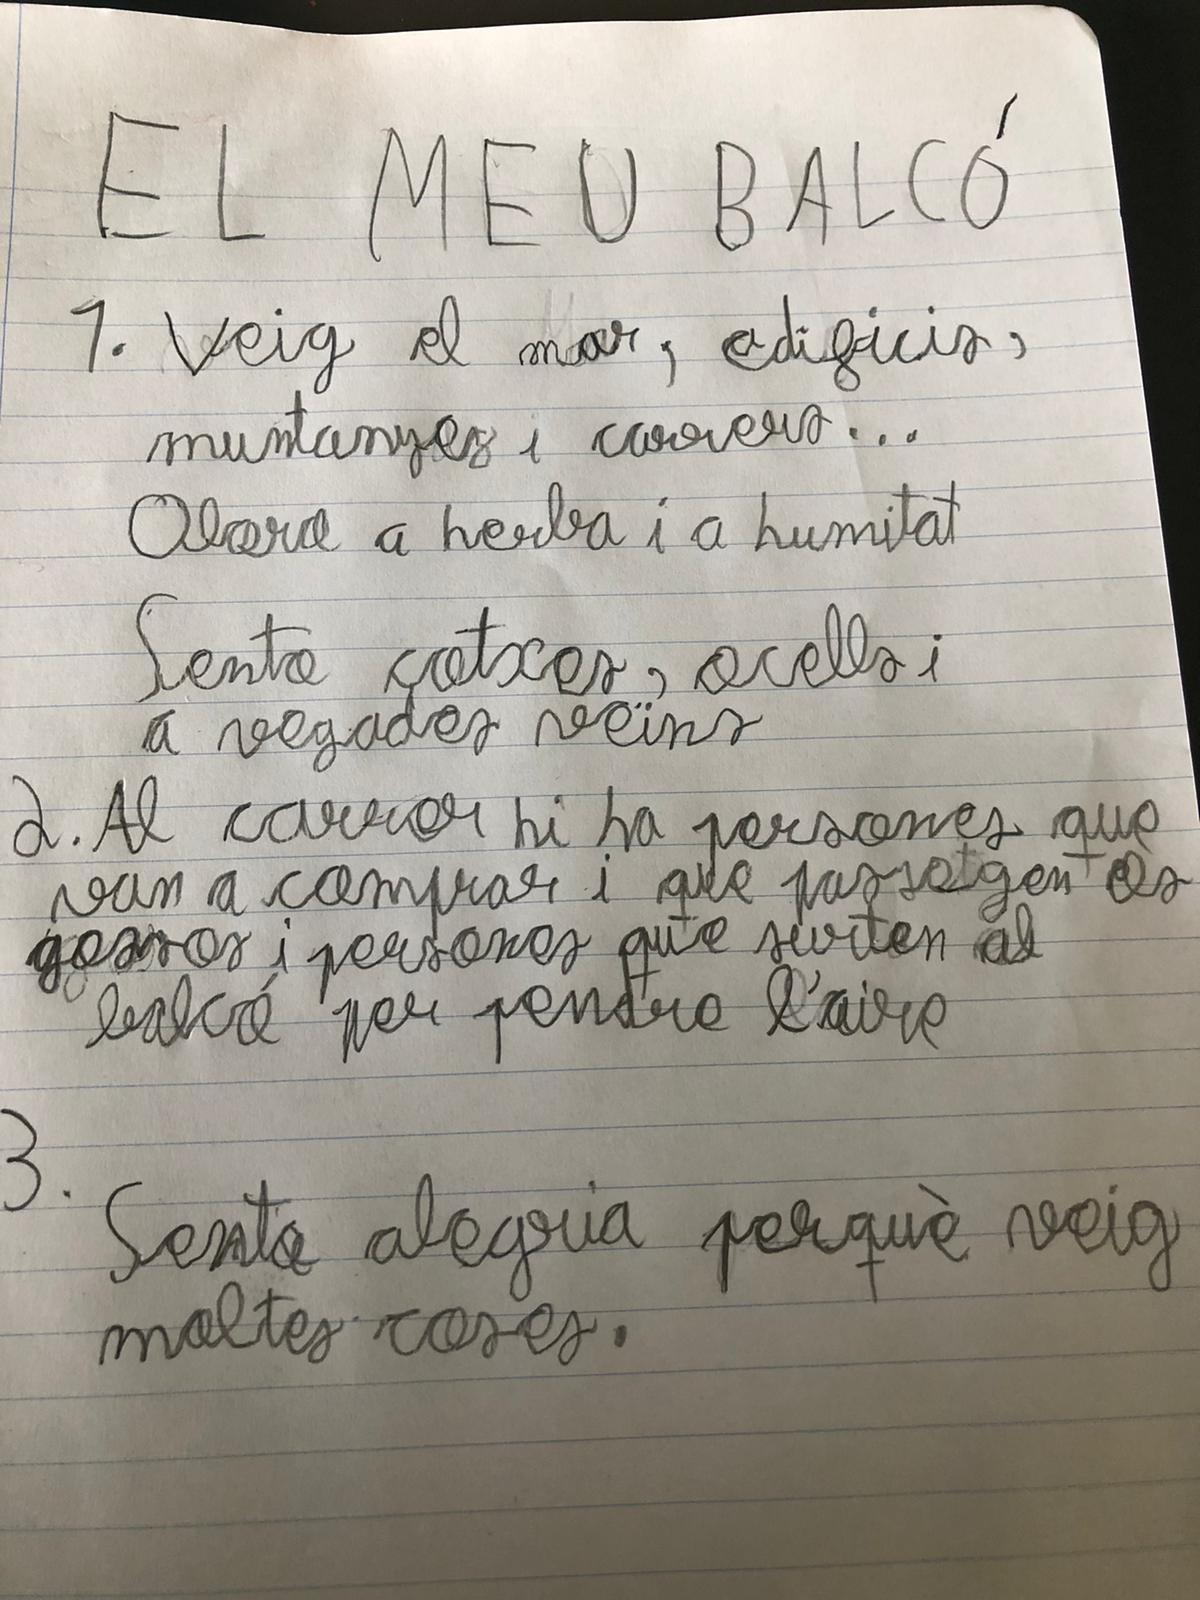 EL MEU BALCÓ
1. Veig el mar, edificis,
muntanyes i carrers...
Olore a herba i a humitat
Sente cotxes, ocells i
a vegades veïns
2. Al carrer hi ha persones que
van a comprar i que passetgen es
gossos i persones que surten al
balcó per pendre l'aire
3.
Sento alegria perquè veig
moltes coses.